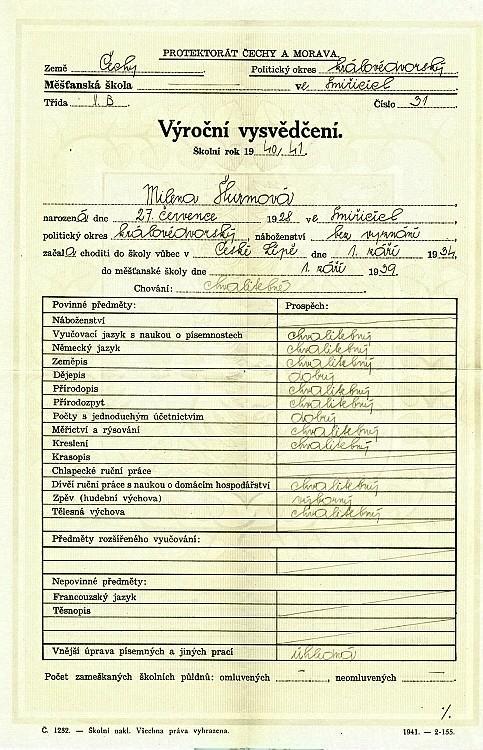 PROTEKTORÁT ČECHY A MORAVA
Země Čechy Politický okres královédvorský
Měšťanská škola ve Smiřicích
Třída II. B Číslo 31
Výroční vysvědčení.
Školní rok 1940/41.
Milena Škurmová
narozená dne 27. července 1928 ve Smiřicích
politický okres královédvorský, náboženství bez vyznání
začala choditi do školy vůbec v České Lípě dne 1. září 1934,
do měšťanské školy dne 1. září 1939.
Chování: chvalitebné
Povinné předměty: Prospěch:
Náboženství
Vyučovací jazyk s naukou o písemnostech chvalitebný
Německý jazyk chvalitebný
Zeměpis chvalitebný
Dějepis dobrý
Přírodopis chvalitebný
Přírodozpyt chvalitebný
Počty s jednoduchým účetnictvím dobrý
Měřictví a rýsování chvalitebný
Kreslení chvalitebný
Krasopis
Chlapecké ruční práce
Dívčí ruční práce s naukou o domácím hospodářství chvalitebný
Zpěv (hudební výchova) výborný
Tělesná výchova chvalitebný
Předměty rozšířeného vyučování:
Nepovinné předměty:
Francouzský jazyk
Těsnopis
Vnější úprava písemných a jiných prací úhledná
Počet zameškaných školních půldnů: omluvených -, neomluvených -
Č. 1232. — Školní nakl. Všechna práva vyhrazena. 1941. — 2-155.